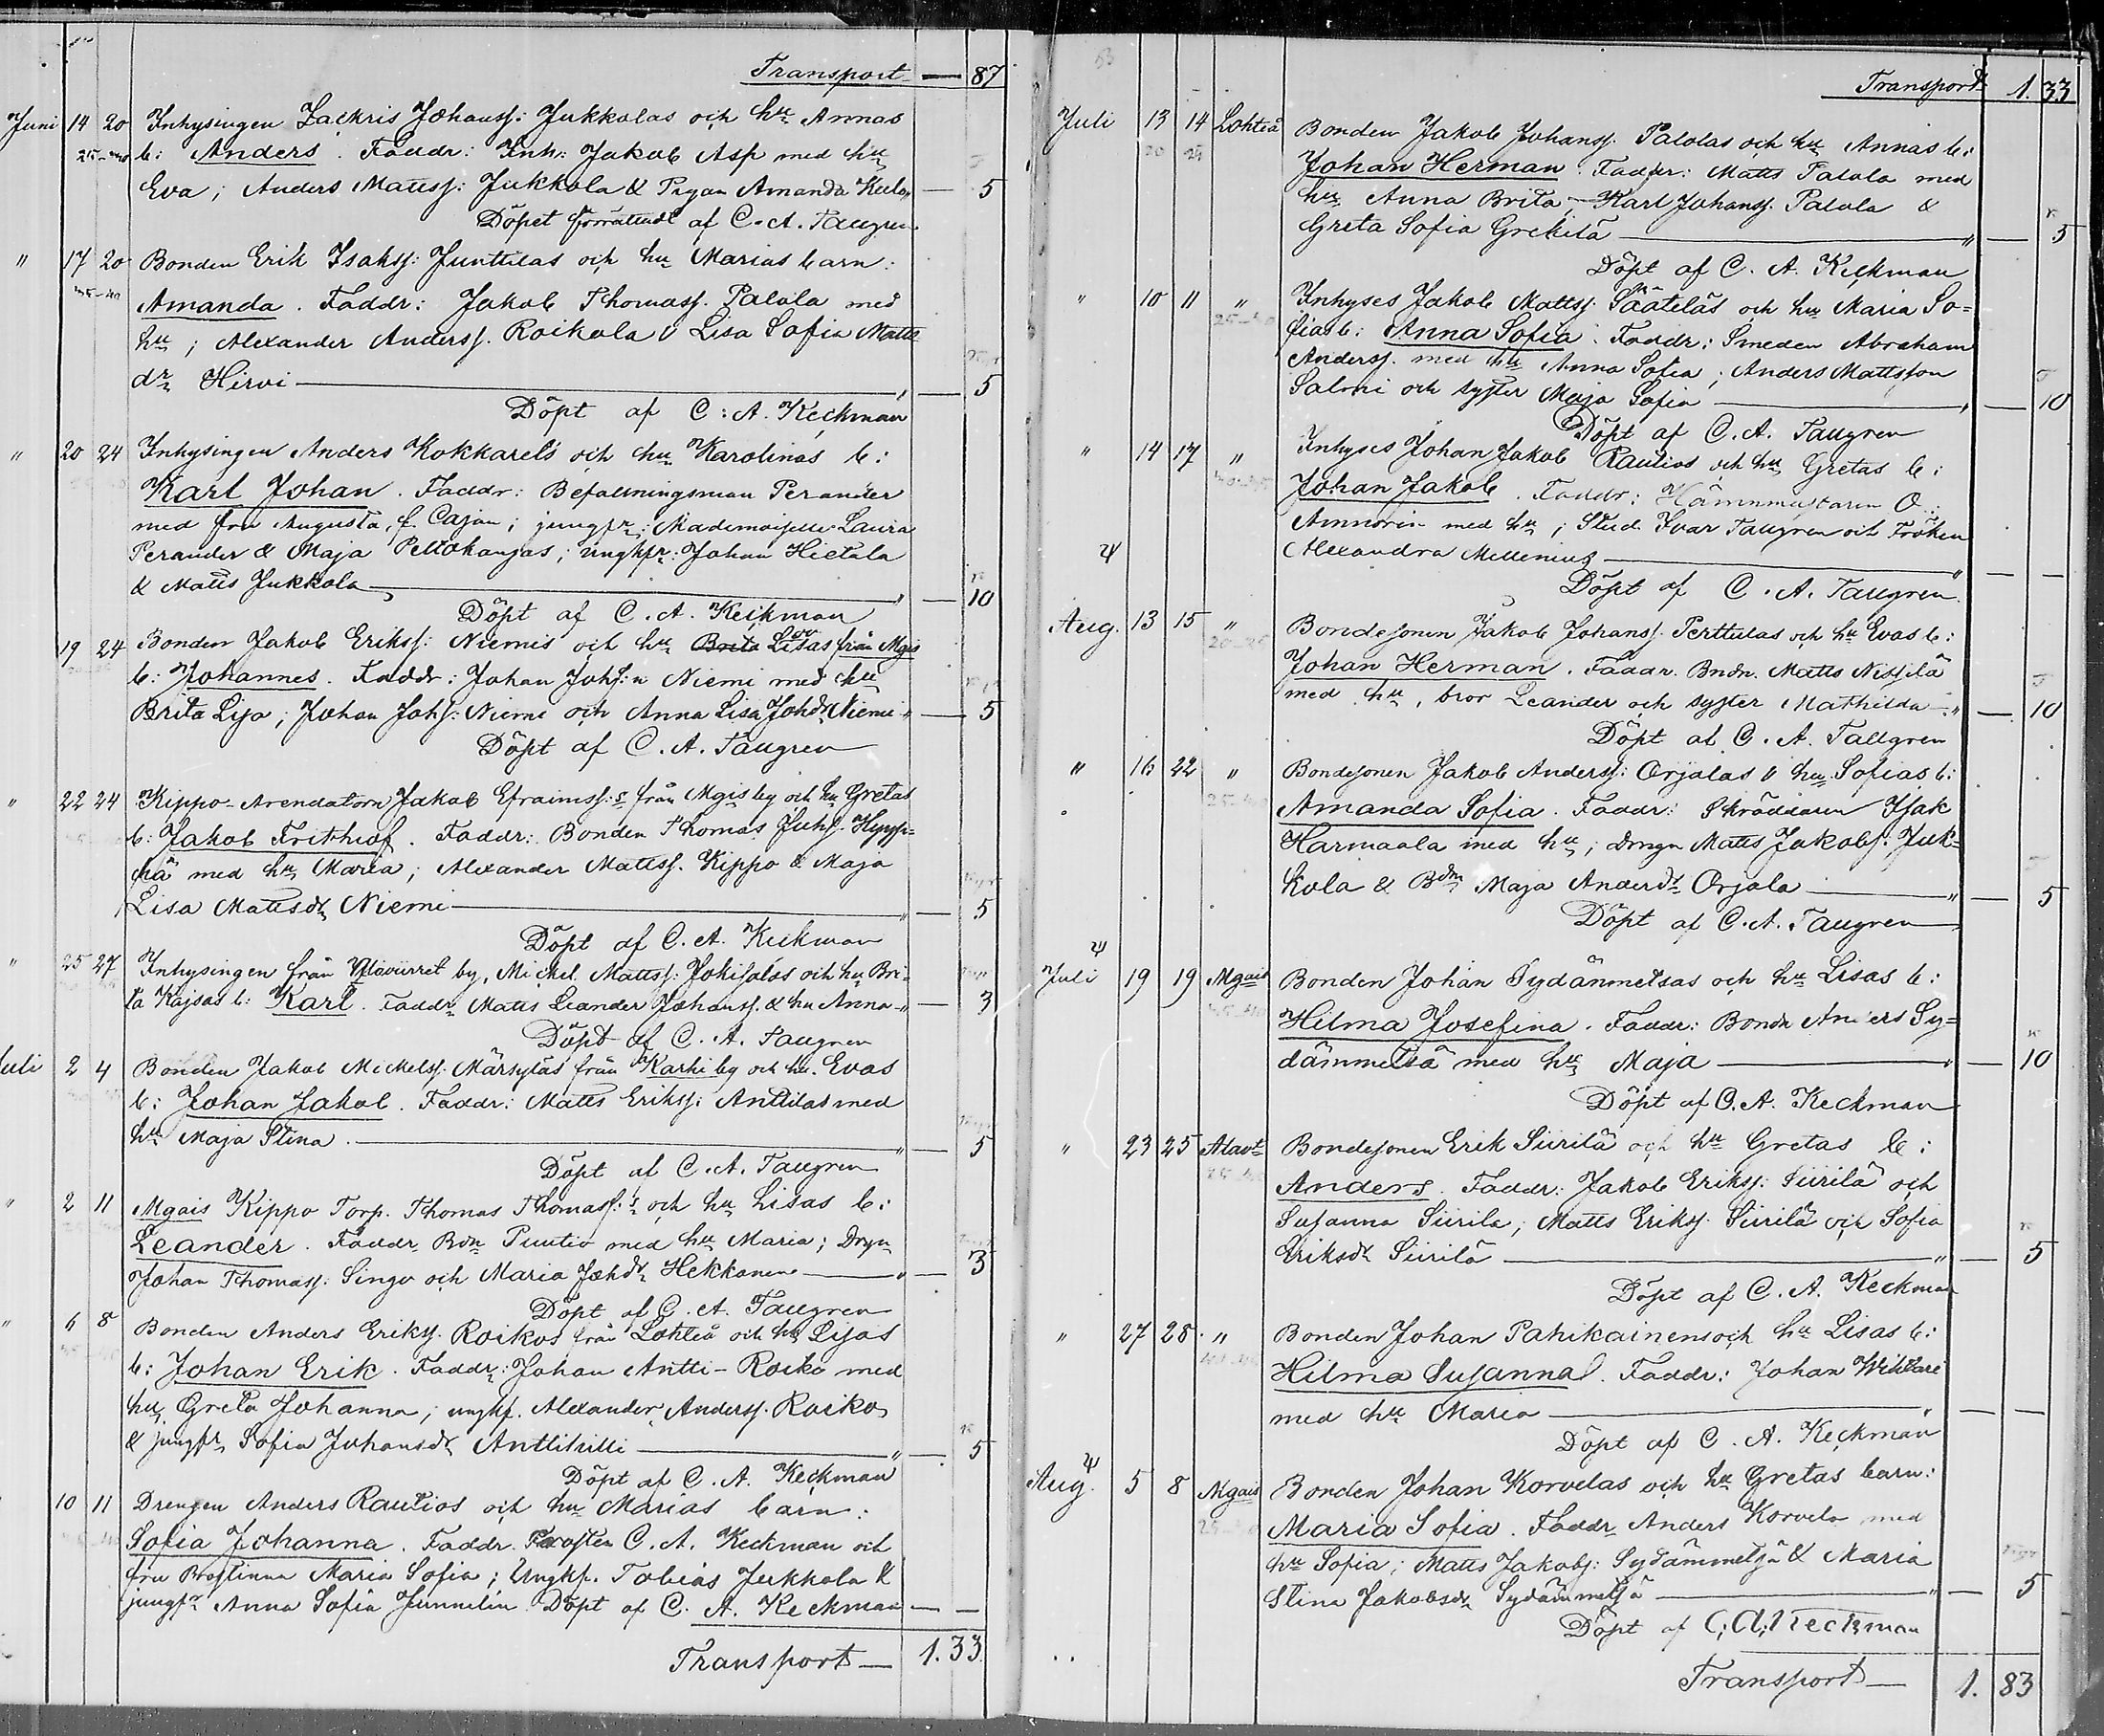 Transport — 87
Juni 14 20 Inhysingen Zackris Johanss: Jukkolas och hu Annas
25-40 b: Anders. Faddr: Inh: Jakob Asp med hu
Eva; Anders Matss: Jukkola & Pigan Amanda — 5
Döpet förrättadt af C. A. Taugren
" 17 20 Bonden Erik Isaks: Junttilas och hu Marias barn:
Amanda. Faddr: Jakob Thomass. Palola med
hu; Alexander Anderss. Roikola & Lisa Sofia Matts
dr Hirvi — " — 5
Döpt af C. A. Keckman
" 20 24 Inhysingen Anders Kokkarels och hu Karolinas b:
Karl Johan. Faddr: Befallningsman Perander
med fru Augusta, f. Cajan; jungfr: Mademoiselle Laura
Perander & Maja Peltokangas; ungkpr: Johan Hietala
& Matts Jukkola — " — 10
Döpt af C. A. Keckman
19 24 Bonden Jakob Erikss: Niemis och hu Brita Lisas från Mgis
b: Johannes. Faddr: Johan Johs:n Niemi med hu
Brita Lisa; Johan Johs: Niemi och Anna Lisa Johdr Niemi " — 5
Döpt af C. A. Taugren
" 22 24 Kippo-Arendatorn Jakob Efraimss:s från Mgis by och hu Gretas
b: Jakob Frithiof. Faddr: Bonden Thomas Juhs.
med hu Maria; Alexander Mattss. Kippo & Maja
Lisa Mattsdr Niemi — " — 5
Döpt af C. A. Keckman
" 25 27 Inhysingen från by, Mickel Mattss: Jokisalos och hu Bri-
ta Kajsas b: Karl. Faddr Matts Leander Johanss. & hu Anna " — 3
Döpt af C. A. Taugren
Juli 2 4 Bonden Jakob Mickelss. Märsyläs från Karhi by och hu. Evas
b: Johan Jakob. Faddr: Matts Erikss: Anttilas med
hu Maja Stina. — " — 5
Döpt af C. A. Taugren
" 2 11 Mgais Kippo Torp. Thomas Thomass:s och hu Lisas b:
Leander. Faddr Bdn Puutio med hu Maria; Drgn
Johan Thomass. Singo och Maria Johdr Hekkanen — " — 3
Döpt af C. A. Taugren
" 6 8 Bonden Anders Erikss. Roikos från Lohteå och hu Lisas
b: Johan Erik. Faddr: Johan Antti-Roiko med
hu Greta Johanna; ungkp. Alexander Anderss. Roiko
& jungfr Sofia Johansdr Anttihilli — " — 5
Döpt af C. A. Keckman
10 11 Drengen Anders Rautios och hu Marias barn:
Sofia Johanna. Faddr. Prosten C. A. Keckman och
fru Prostinna Maria Sofia; Ungkp. Tobias Jukkola &
jungfr Anna Sofia Junnelin. Döpt af C. A. Keckman — —
Transport — 1. 33
Transport 1. 33
Juli 13 14 Lohteå Bonden Jakob Johanss. Palolas och hu Annas b:
Johan Herman. Faddr: Matts Palola med
hu Anna Brita; Karl Johanss. Palola &
Greta Sofia — " — 5
Döpt af C. A. Keckman
" 10 11 " Inhyses Jakob Mattss. Sääteläs och hu Maria So=
25-40 fias b: Anna Sofia. Faddr: Smeden Abraham
Anderss. med hu Anna Sofia; Anders Mattsson
Salmi och syster Maja Sofia — " — 10
Döpt af C. A. Taugren
" 14 17 " Inhyses Johan Jakob Rautios och hu Gretas b:
Johan Jakob. Faddr: Hamnmästaren O.
med hu; Stud. Ivar Taugren och Fröken
Alexandra Mellenius — " — —
Döpt af C. A. Taugren
Aug. 13 15 " Bondesonen Jakob Johanss. Perttulas och hu Evas b:
20-25 Johan Herman. Faddr. Bndn. Matts Nissilä
med hu, bror Leander och syster Mathilda — " — 10
Döpt af C. A. Tallgren
" 16 22 " Bondesonen Jakob Anderss: Orjalas & hu Sofias b:
Amanda Sofia. Faddr: Skräddaren Isak
Harmaala med hu; drngn Matts Jakobs. Juk=
kola & Bdm Maja Andersdr Orjala — " — 5
Döpt af C. A. Taugren
Juli 19 19 Mgais Bonden Johan Sydänmetsas och hu Lisas b:
Hilma Josefina. Faddr: Bondn Anders Sy=
dämmetsä med hu Maja — " — 10
Döpt af C. A. Keckman
" 23 25 Alavt Bondesonen Erik Siirilä och hu Gretas b:
Anders. Faddr: Jakob Erikss: Siirilä och
Susanna Siirilä; Matts Erikss. Siirilä och Sofia
Eriksdr Siirilä — " — 5
Döpt af C. A. Keckman
" 27 28 " Bonden Johan Pahikainens och hu Lisas b:
Hilma Susanna. Faddr: Johan
med hu Maria — " — —
Döpt af C. A. Keckman
Aug. 5 8 Mgais Bonden Johan Korvelas och hu Gretas barn:
Maria Sofia. Faddr Anders Korvela med
hu Sofia; Matts Jakobs: Sydämmetsä & Maria
Stina Jakobsdr Sydämmetsä — " — 5
Döpt af C. A. Keckman
Transport — 1. 83